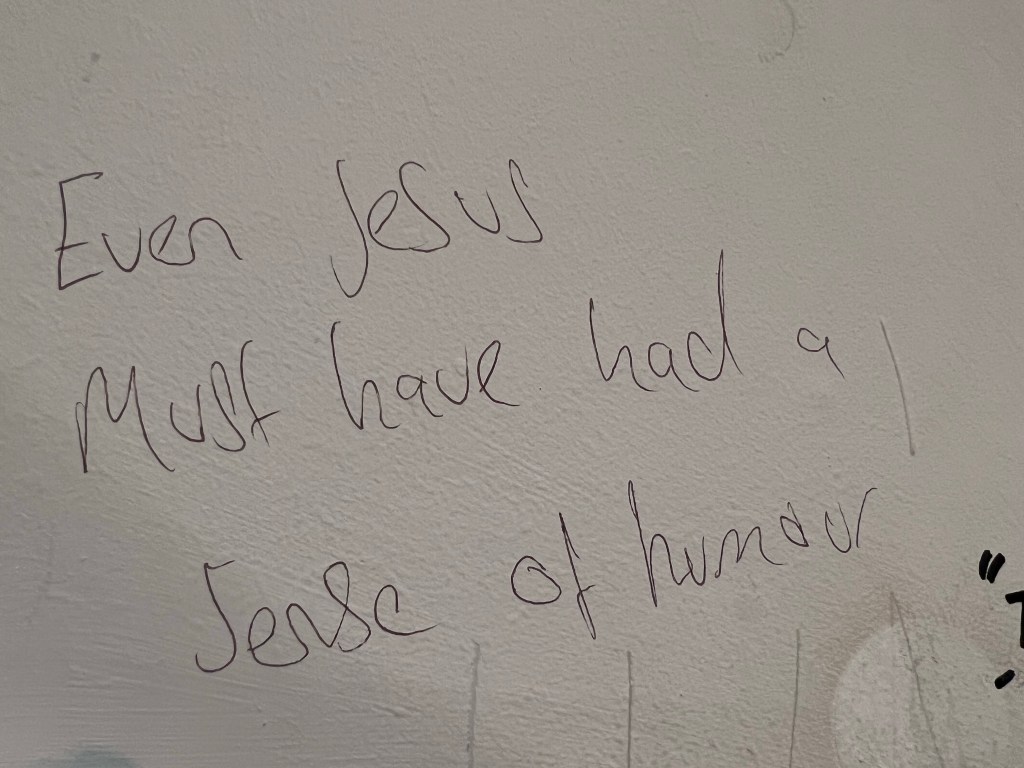 Even Jesus
Must have had a
Sense of humour